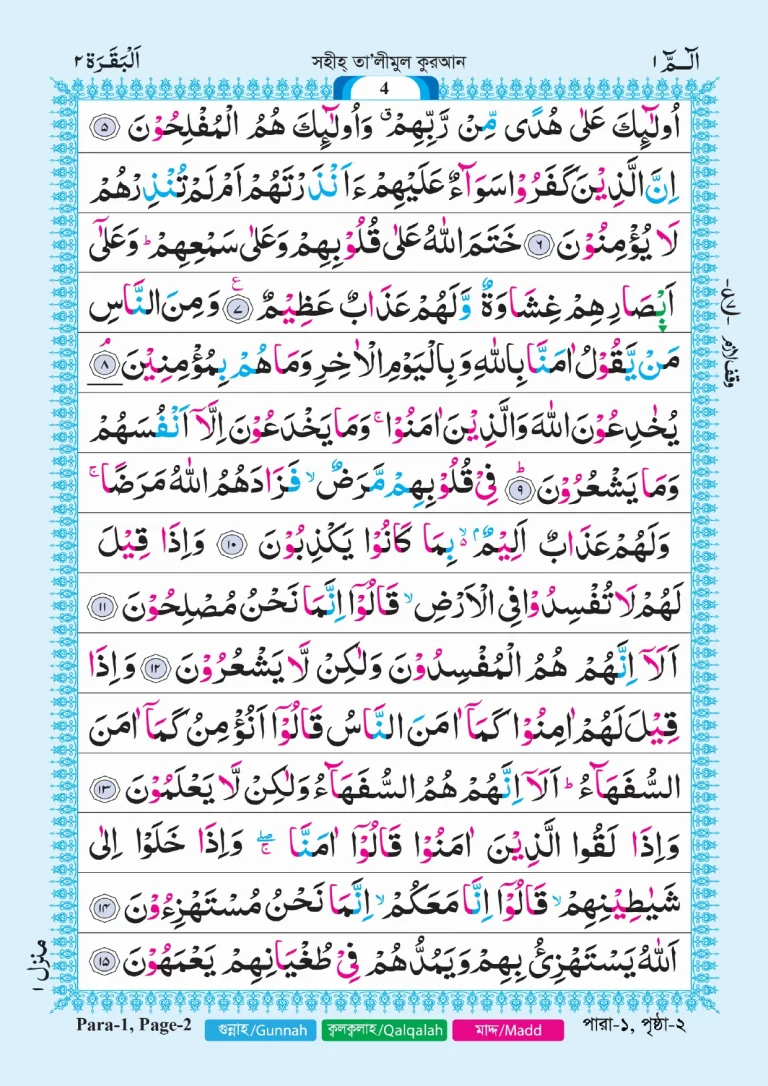 الٓـمّٓ ١ সহীহ্ তা'লীমুল কুরআন اَلْبَقَرَة ٢
4
اُولٰٓئِكَ عَلٰى هُدًى مِّنْ رَّبِّهِمْ ۤ وَاُولٰٓئِكَ هُمُ الْمُفْلِحُوْنَ ۝٥
اِنَّ الَّذِيْنَ كَفَرُوْا سَوَآءٌ عَلَيْهِمْ ءَاَنْذَرْتَهُمْ اَمْ لَمْ تُنْذِرْهُمْ
لَا يُؤْمِنُوْنَ ۝٦ خَتَمَ اللّٰهُ عَلٰى قُلُوْبِهِمْ وَعَلٰى سَمْعِهِمْ ؕ وَعَلٰٓى
اَبْصَارِهِمْ غِشَاوَةٌ وَّلَهُمْ عَذَابٌ عَظِيْمٌ ۝٧ ع وَمِنَ النَّاسِ
مَنْ يَّقُوْلُ اٰمَنَّا بِاللّٰهِ وَبِالْيَوْمِ الْاٰخِرِ وَمَا هُمْ بِمُؤْمِنِيْنَ ۘ۝٨
يُخٰدِعُوْنَ اللّٰهَ وَالَّذِيْنَ اٰمَنُوْا ۚ وَمَا يَخْدَعُوْنَ اِلَّاۤ اَنْفُسَهُمْ
وَمَا يَشْعُرُوْنَ ؕ۝٩ فِيْ قُلُوْبِهِمْ مَّرَضٌ ۙ فَزَادَهُمُ اللّٰهُ مَرَضًا ۚ
وَلَهُمْ عَذَابٌ اَلِيْمٌ ۢ ۙ۬ بِمَا كَانُوْا يَكْذِبُوْنَ ۝١٠ وَاِذَا قِيْلَ
لَهُمْ لَا تُفْسِدُوْا فِى الْاَرْضِ ۙ قَالُوْۤا اِنَّمَا نَحْنُ مُصْلِحُوْنَ ۝١١
اَلَاۤ اِنَّهُمْ هُمُ الْمُفْسِدُوْنَ وَلٰكِنْ لَّا يَشْعُرُوْنَ ۝١٢ وَاِذَا
قِيْلَ لَهُمْ اٰمِنُوْا كَمَاۤ اٰمَنَ النَّاسُ قَالُوْۤا اَنُؤْمِنُ كَمَاۤ اٰمَنَ
السُّفَهَآءُ ؕ اَلَاۤ اِنَّهُمْ هُمُ السُّفَهَآءُ وَلٰكِنْ لَّا يَعْلَمُوْنَ ۝١٣
وَاِذَا لَقُوا الَّذِيْنَ اٰمَنُوْا قَالُوْۤا اٰمَنَّا ۖۚ وَاِذَا خَلَوْا اِلٰى
شَيٰطِيْنِهِمْ ۙ قَالُوْۤا اِنَّا مَعَكُمْ ۙ اِنَّمَا نَحْنُ مُسْتَهْزِءُوْنَ ۝١٤
اَللّٰهُ يَسْتَهْزِئُ بِهِمْ وَيَمُدُّهُمْ فِيْ طُغْيَانِهِمْ يَعْمَهُوْنَ ۝١٥
وقف لازم
منزل ١
Para-1, Page-2 গুন্নাহ/Gunnah ক্বলক্বলাহ/Qalqalah মাদ্দ/Madd পারা-১, পৃষ্ঠা-২